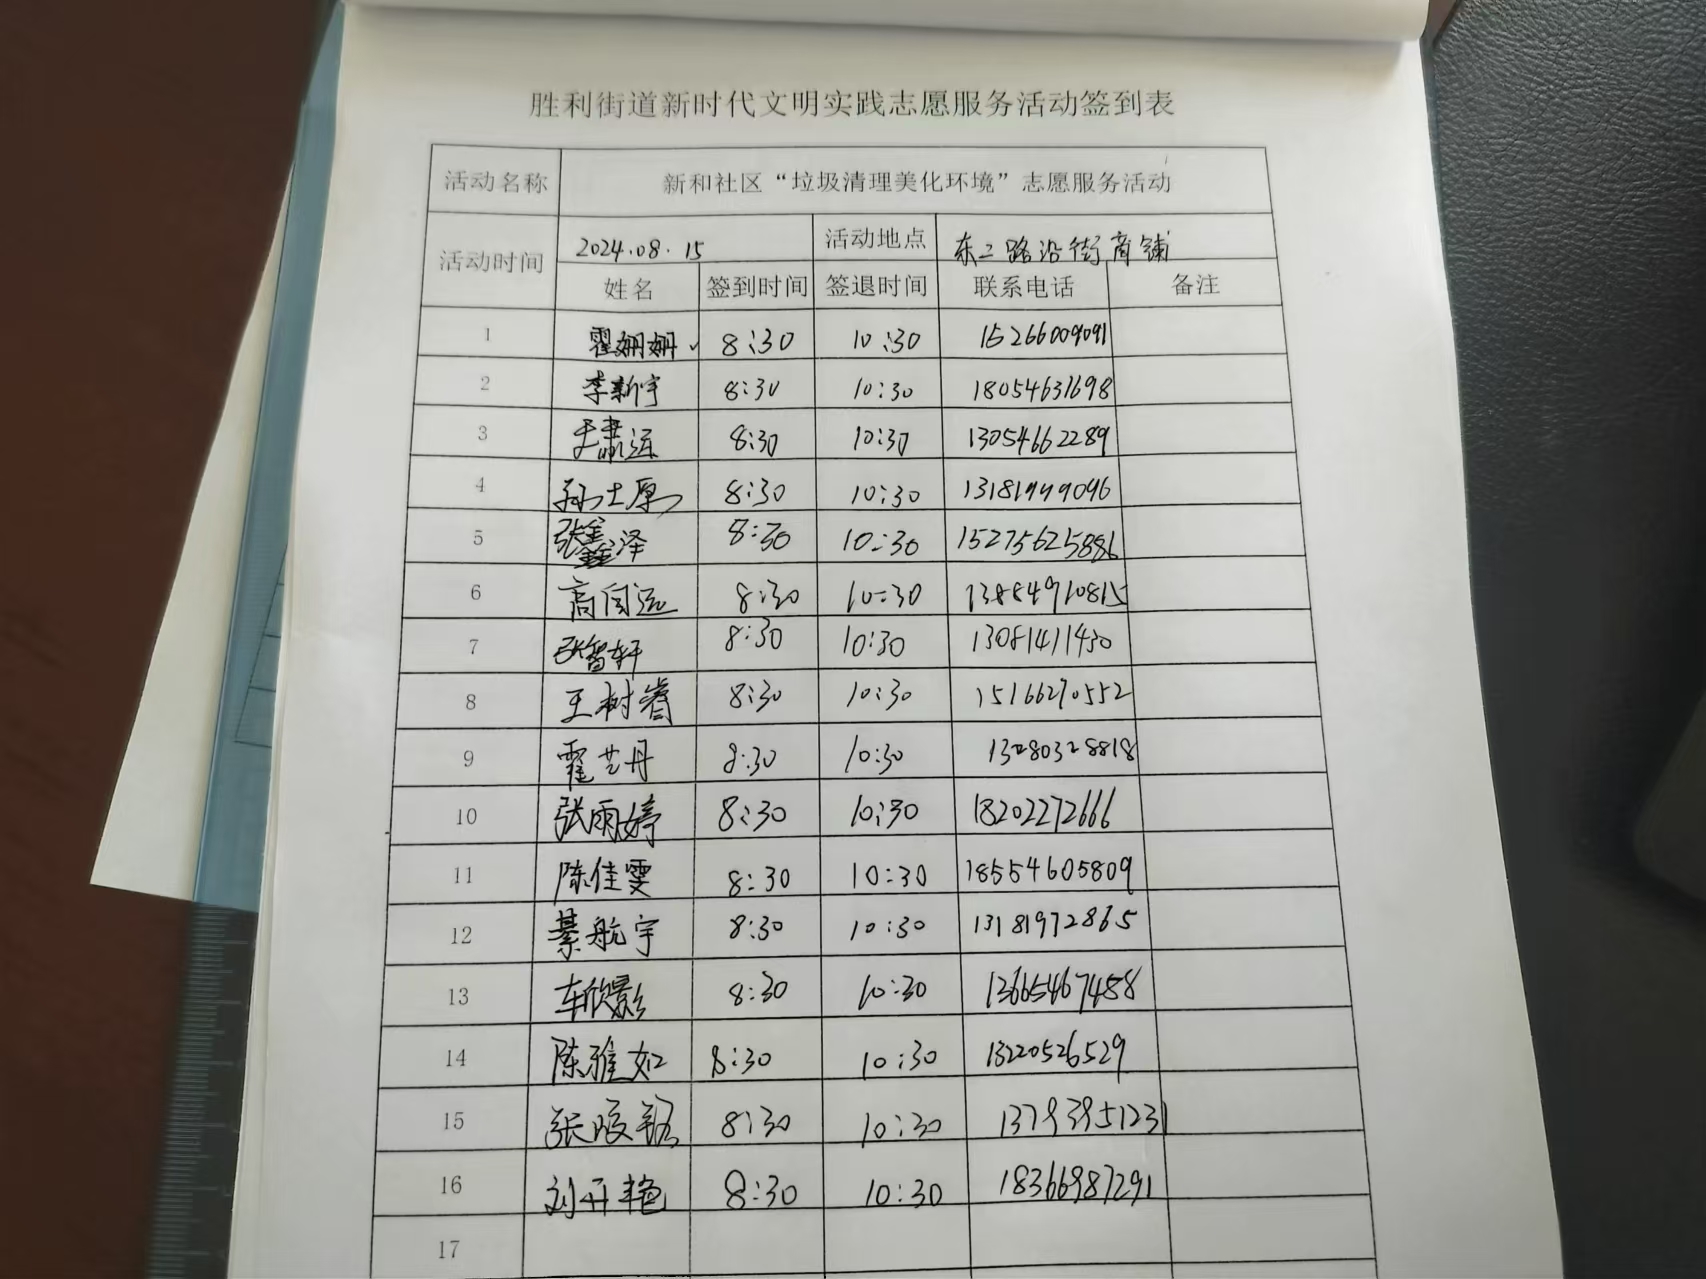 胜利街道新时代文明实践志愿服务活动签到表
活动名称 新和社区“垃圾清理美化环境”志愿服务活动
活动时间 2024.08.15 活动地点 东二路沿街商铺
姓名 签到时间 签退时间 联系电话 备注
1 霍姗姗 8:30 10:30 15266009091
2 李新宇 8:30 10:30 18054631698
3 于肃运 8:30 10:30 13054662289
4 孙士原 8:30 10:30 13181949096
5 张鑫泽 8:30 10:30 15275625886
6 高闰远 8:30 10:30 13884910815
7 张智轩 8:30 10:30 13081411430
8 王树睿 8:30 10:30 15166270552
9 霍艺丹 8:30 10:30 13280328818
10 张雨婷 8:30 10:30 18202272666
11 陈佳雯 8:30 10:30 18554605809
12 綦航宇 8:30 10:30 13181972865
13 车欣影 8:30 10:30 13665467488
14 陈雅如 8:30 10:30 13220526529
15 张峻铭 8:30 10:30 13793951231
16 刘开艳 8:30 10:30 18366987291
17